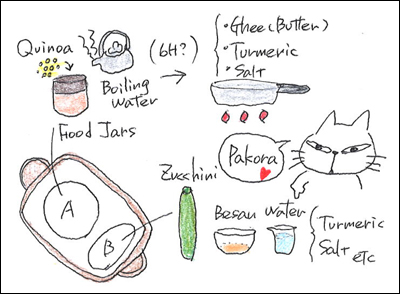 Quinoa
B
Boiling
Water
(6H?)
・Ghee (Butter)
・Turmeric
・Salt
Food Jars
Pakora
Zucchini
A
B
Besan Water
Turmeric
Salt
etc